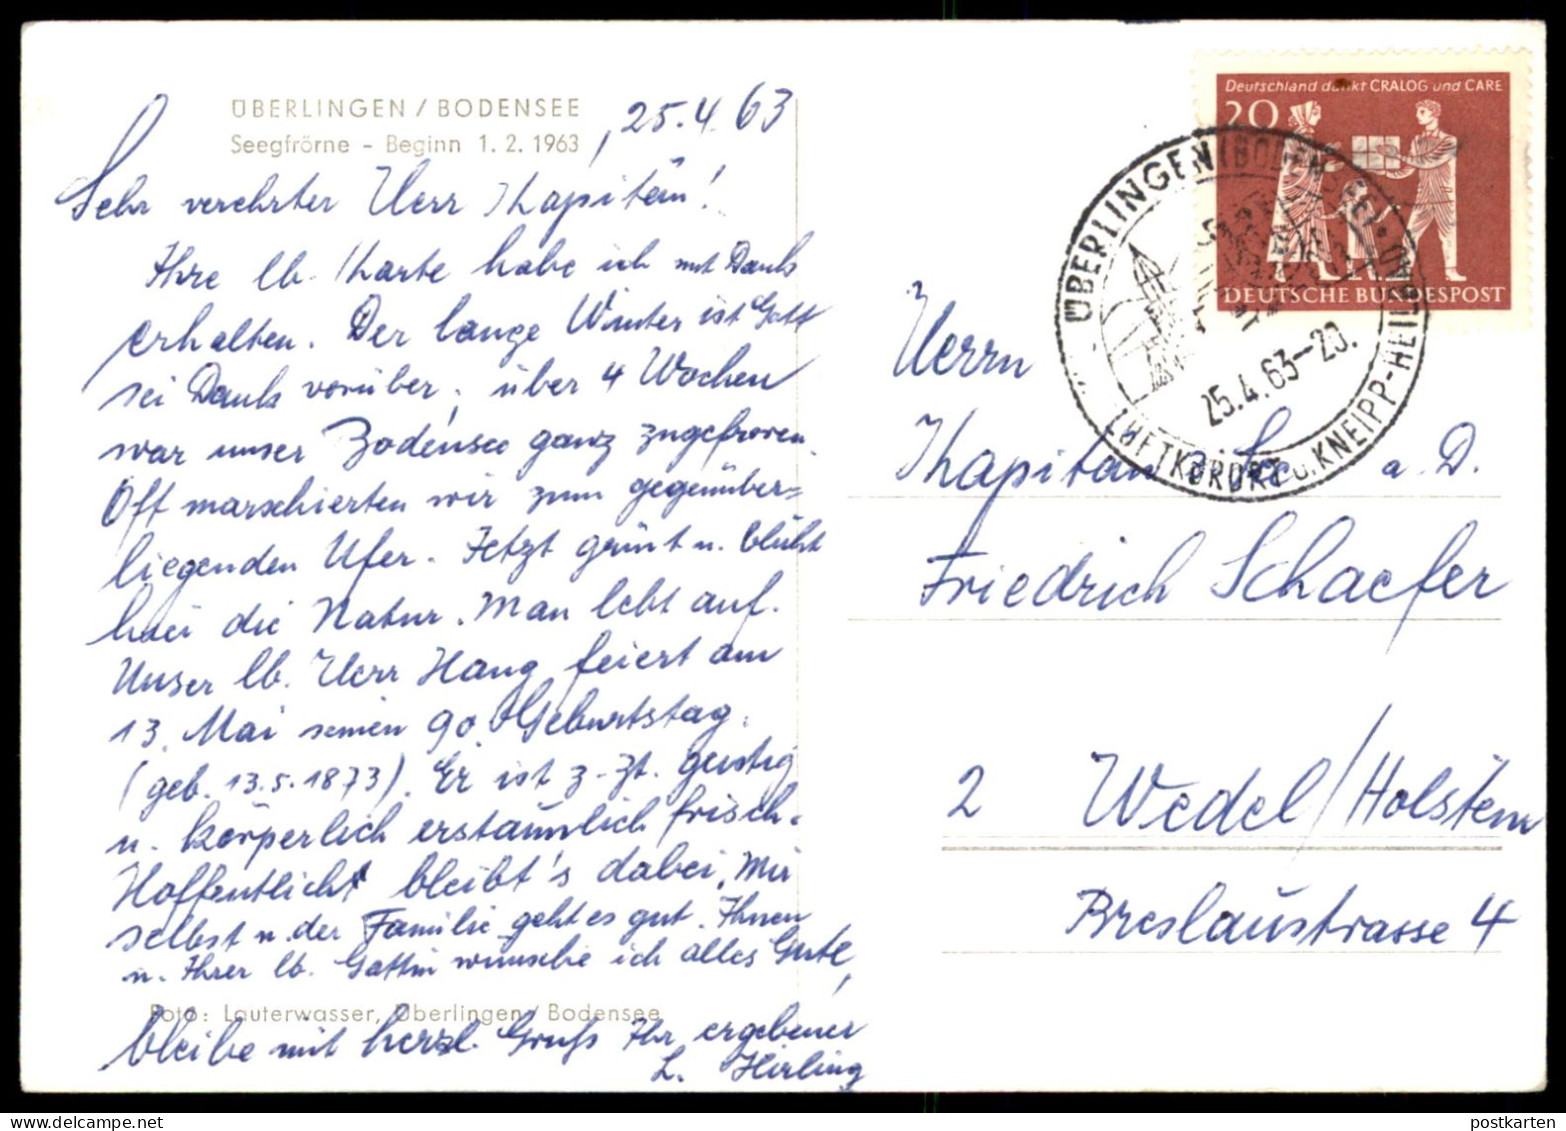 ÜBERLINGEN / BODENSEE
Seegfrörne - Beginn 1. 2. 1963
, 25.4.63
Sehr verehrter Herr Kapitän!
Ihre lb. Karte habe ich mit Dank
erhalten. Der lange Winter ist Gott
sei Dank vorüber, über 4 Wochen
war unser Bodensee ganz zugefroren.
Oft marschierten wir zum gegenüber=
liegenden Ufer. Jetzt grünt u. blüht
hier die Natur. Man lebt auf.
Unser lb. Herr Haug feiert am
13. Mai seinen 90 Geburtstag.
(geb. 13.5.1873). Er ist z. Zt. geistig
u. körperlich erstaunlich frisch.
Hoffentlich bleibt's dabei. Mir
selbst u. der Familie geht es gut. Ihnen
u. Ihrer lb. Gattin wünsche ich alles Gute,
Foto: Lauterwasser, Überlingen/Bodensee
bleibe mit herzl. Gruß Ihr ergebener
L. Hirling
Deutschland dankt CRALOG und CARE
20
DEUTSCHE BUNDESPOST
ÜBERLINGEN (BODENSEE)
25.4.63-20.
LUFTKURORT u. KNEIPP-HEILBAD
Herrn
Kapitän z. See a. D.
Friedrich Schaefer
2 Wedel/Holstein
Breslaustrasse 4
postkarten